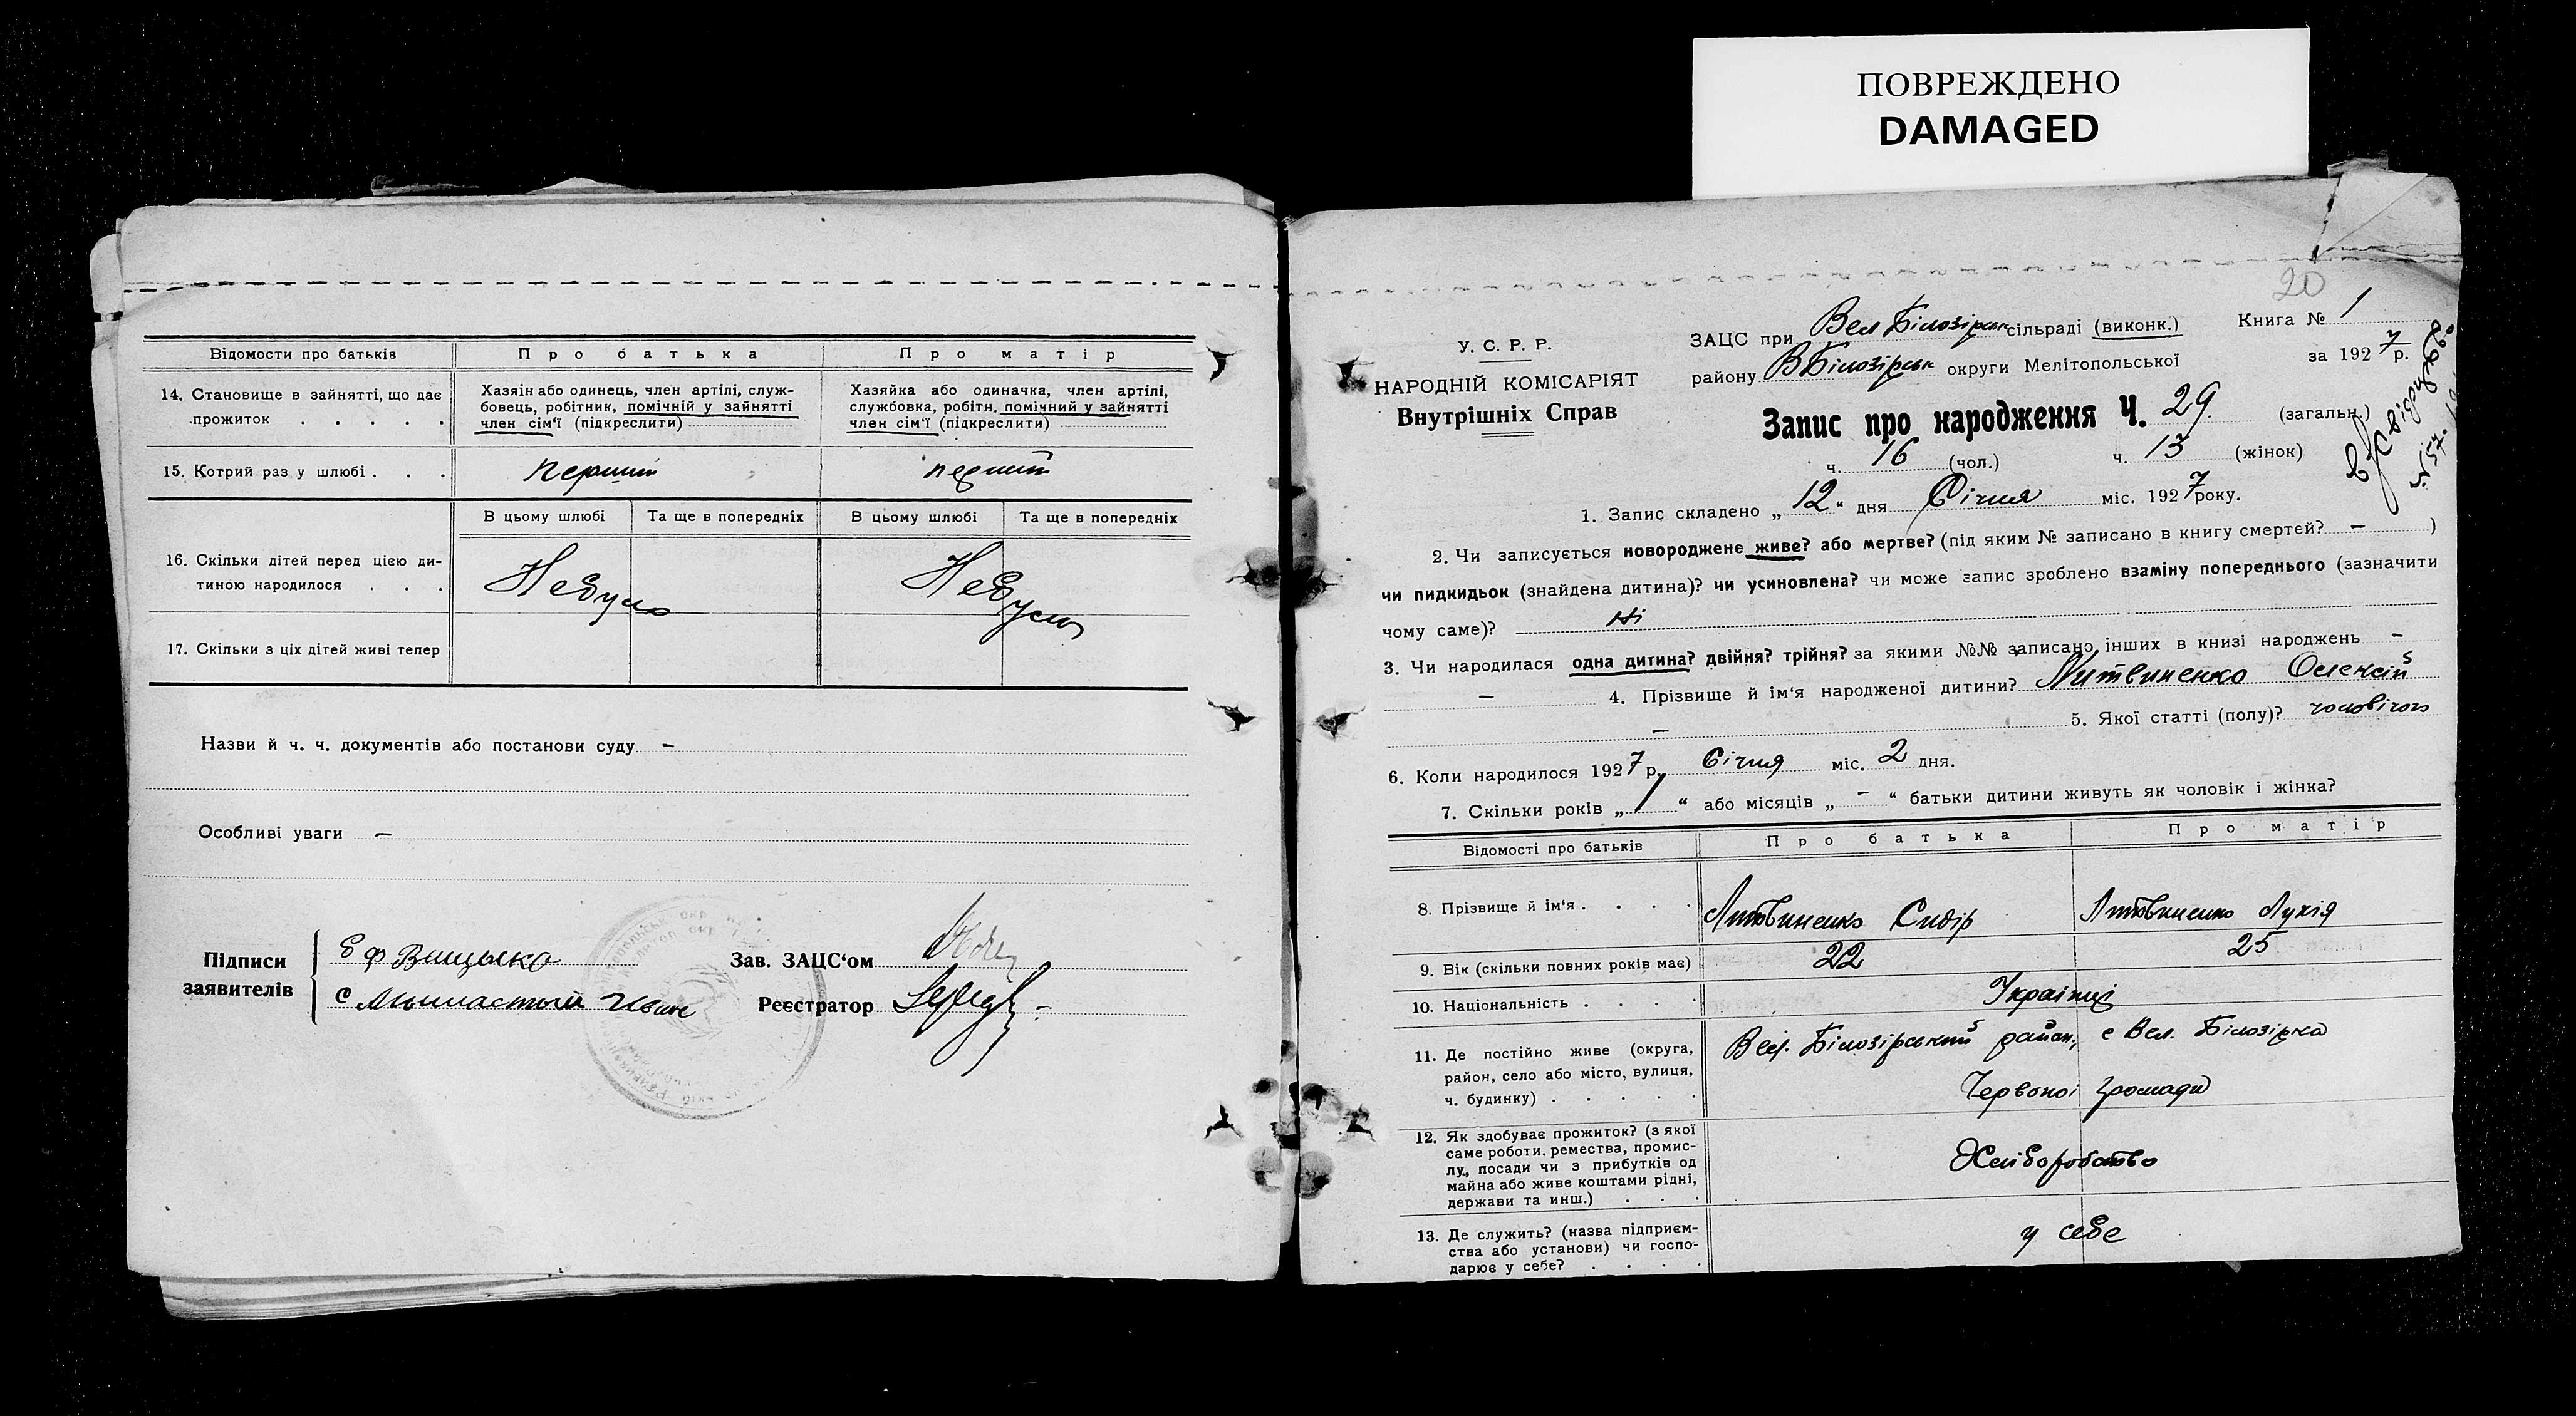 ПОВРЕЖДЕНО
DAMAGED
Відомости про батьків Про батька Про матір
14. Становище в зайнятті, що дає прожиток . . . . .
Хазяїн або одинець, член артілі, служ-
бовець, робітник, помічній у зайнятті
член сім'ї (підкреслити)
Хазяйка або одиначка, член артілі,
службовка, робітн. помічний у зайнятті
член сім'ї (підкреслити)
15. Котрий раз у шлюбі . . . перший перший
В цьому шлюбі Та ще в попередніх В цьому шлюбі Та ще в попередніх
16. Скільки дітей перед цією ди-
тиною народилося . . . Небуло Небуло
17. Скільки з ціх дітей живі тепер
Назви й ч. ч. документів або постанови суду —
Особливі уваги —
Підписи
заявителів
Зав. ЗАЦС'ом
Реєстратор
20
У. С. Р. Р.
НАРОДНІЙ КОМІСАРІЯТ
Внутрішніх Справ
ЗАЦС при Вел Білозірськ сільраді (виконк.) Книга № 1
району ВБілозірськ округи Мелітопольської за 1927 р.
Запис про народження Ч. 29 (загальн.)
ч. 16 (чол.) ч. 13 (жінок)
1. Запис складено „12“ дня Січня міс. 1927 року.
2. Чи записується новороджене живе? або мертве? (під яким № записано в книгу смертей? — )
чи пидкидьок (знайдена дитина)? чи усиновлена? чи може запис зроблено взаміну попереднього (зазначити
чому саме)? Ні
3. Чи народилася одна дитина? двійня? трійня? за якими №№ записано інших в книзі народжень —
— 4. Прізвище й ім'я народженої дитини? Литвиненко Олексій
— 5. Якої статті (полу)? чоловічого
6. Коли народилося 1927 р. Січня міс. 2 дня.
7. Скільки років „1“ або місяців „—“ батьки дитини живуть як чоловік і жінка?
Відомості про батьків Про батька Про матір
8. Прізвище й ім'я . . . . Литвиненко Сидір Литвиненко Лукія
9. Вік (скільки повних років має) 22 25
10. Національність . . . . Українці
11. Де постійно живе (округа,
район, село або місто, вулиця,
ч. будинку) . . . . .
Вел. Білозірський район, с Вел. Білозірка
Червоної громади
12. Як здобуває прожиток? (з якої
саме роботи, ремества, промис-
лу, посади чи з прибутків од
майна або живе коштами рідні,
держави та инш.) . . .
Хліборобство
13. Де служить? (назва підприєм-
ства або установи) чи госпо-
дарює у себе? . . . .
у себе